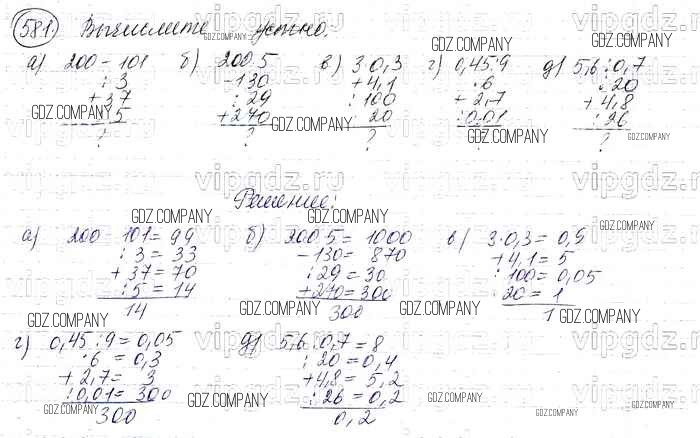 581. Вычислите устно.
а) 200 - 101 б) 200·5 в) 3·0,3 г) 0,45:9 д) 5,6:0,7
: 3 - 130 + 4,1 ·6 : 20
+ 37 : 29 : 100 + 2,7 + 4,8
: 5 + 270 · 20 : 0,01 : 26
? ? ? ? ?
Решение:
а) 200 - 101 = 99 б) 200·5 = 1000 в) 3·0,3 = 0,9
: 3 = 33 - 130 = 870 + 4,1 = 5
+ 37 = 70 : 29 = 30 : 100 = 0,05
: 5 = 14 + 270 = 300 · 20 = 1
14 300 1
г) 0,45:9 = 0,05 д) 5,6:0,7 = 8
·6 = 0,3 : 20 = 0,4
+ 2,7 = 3 + 4,8 = 5,2
: 0,01 = 300 : 26 = 0,2
300 0,2
GDZ.COMPANY
vipgdz.ru